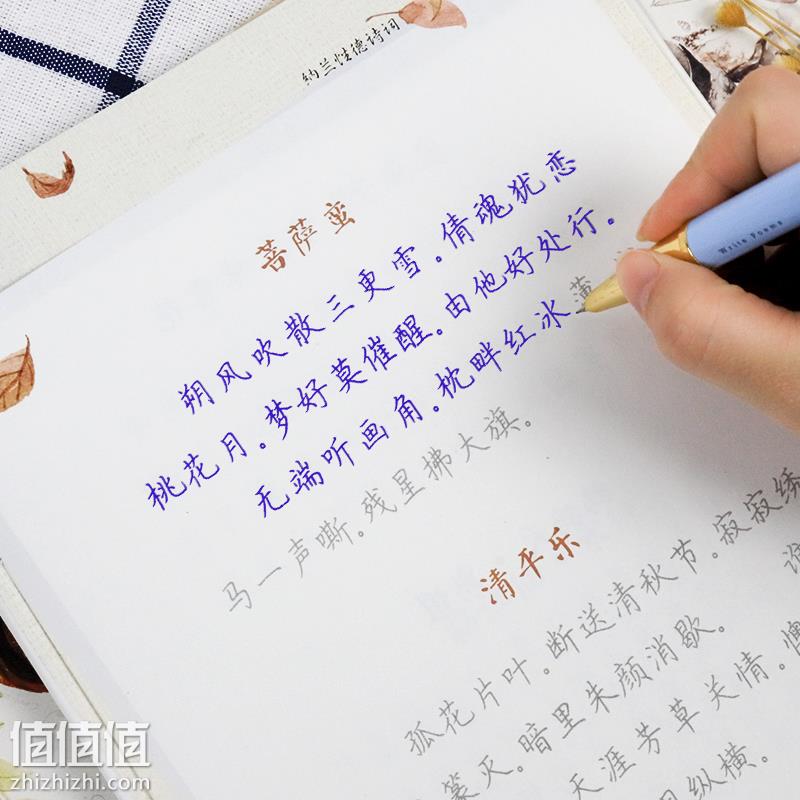 纳兰性德诗词
菩萨蛮
朔风吹散三更雪。倩魂犹恋
桃花月。梦好莫催醒。由他好处行。
无端听画角。枕畔红冰薄
马一声嘶。残星拂大旗。
清平乐
孤花片叶。断送清秋节。寂寂绣
篆灭。暗里朱颜消歇。谁
天涯芳草关情。懊
纵横。
Write Poems
值值值
zhizhizhi.com